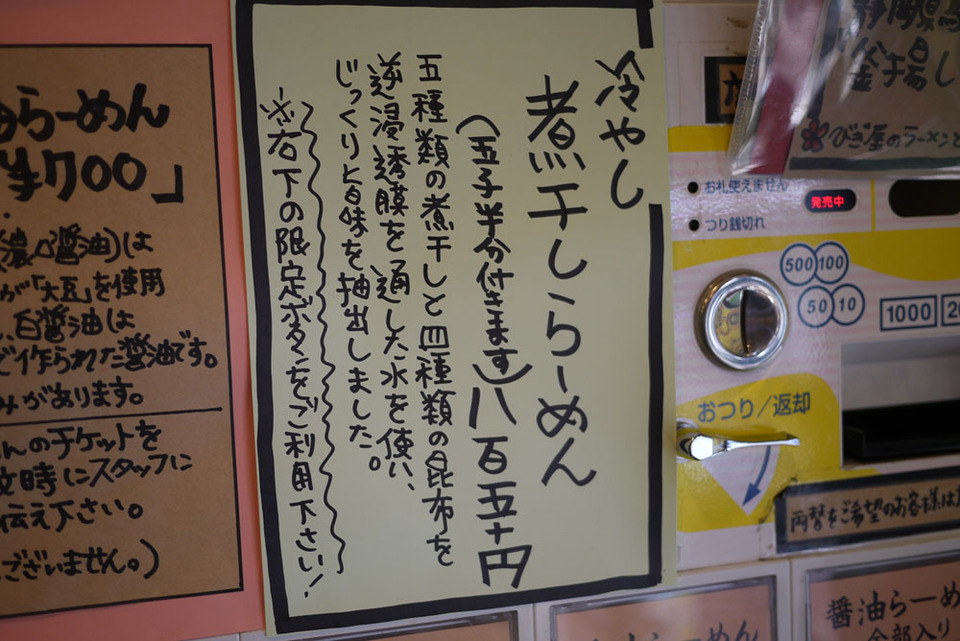 冷やし
煮干しらーめん
(玉子半分付きます)八百五十円
五種類の煮干しと四種類の昆布を
逆浸透膜を通した水を使い、
じっくり旨味を抽出しました。
※右下の限定ボタンをご利用下さい!
らーめん
¥700」
醤油)は
が「大豆」を使用
白醤油は
で作られた醤油です。
みがあります。
んのチケットを
文時にスタッフに
伝え下さい。
ございません。)
静岡県
釜揚し
びぎ屋のラーメンと
お札使えません
つり銭切れ
発売中
500 100
50 10
1000
おつり/返却
両替をご希望のお客様は
醤油らーめ
全部入り
らーめん